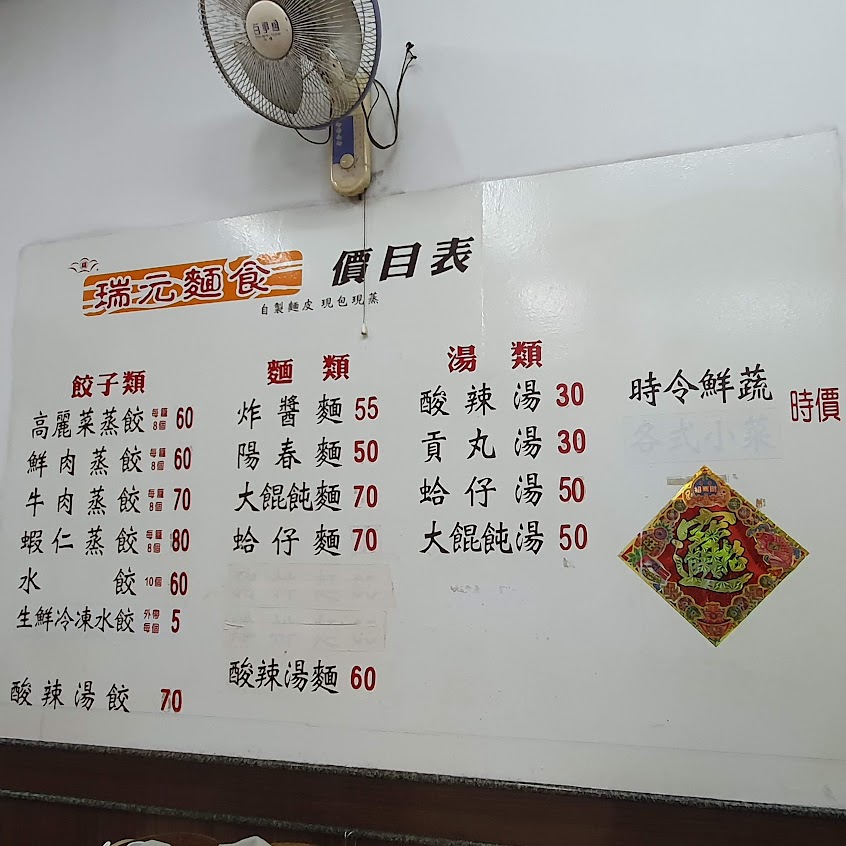 瑞元麵食 價目表
自製麵皮 現包現蒸
餃子類
高麗菜蒸餃 每籠8個 60
鮮肉蒸餃 每籠8個 60
牛肉蒸餃 每籠8個 70
蝦仁蒸餃 每籠8個 80
水餃 10個 60
生鮮冷凍水餃 外帶每個 5
酸辣湯餃 70
麵類
炸醬麵 55
陽春麵 50
大餛飩麵 70
蛤仔麵 70
酸辣湯麵 60
湯類
酸辣湯 30
貢丸湯 30
蛤仔湯 50
大餛飩湯 50
時令鮮蔬 時價
各式小菜